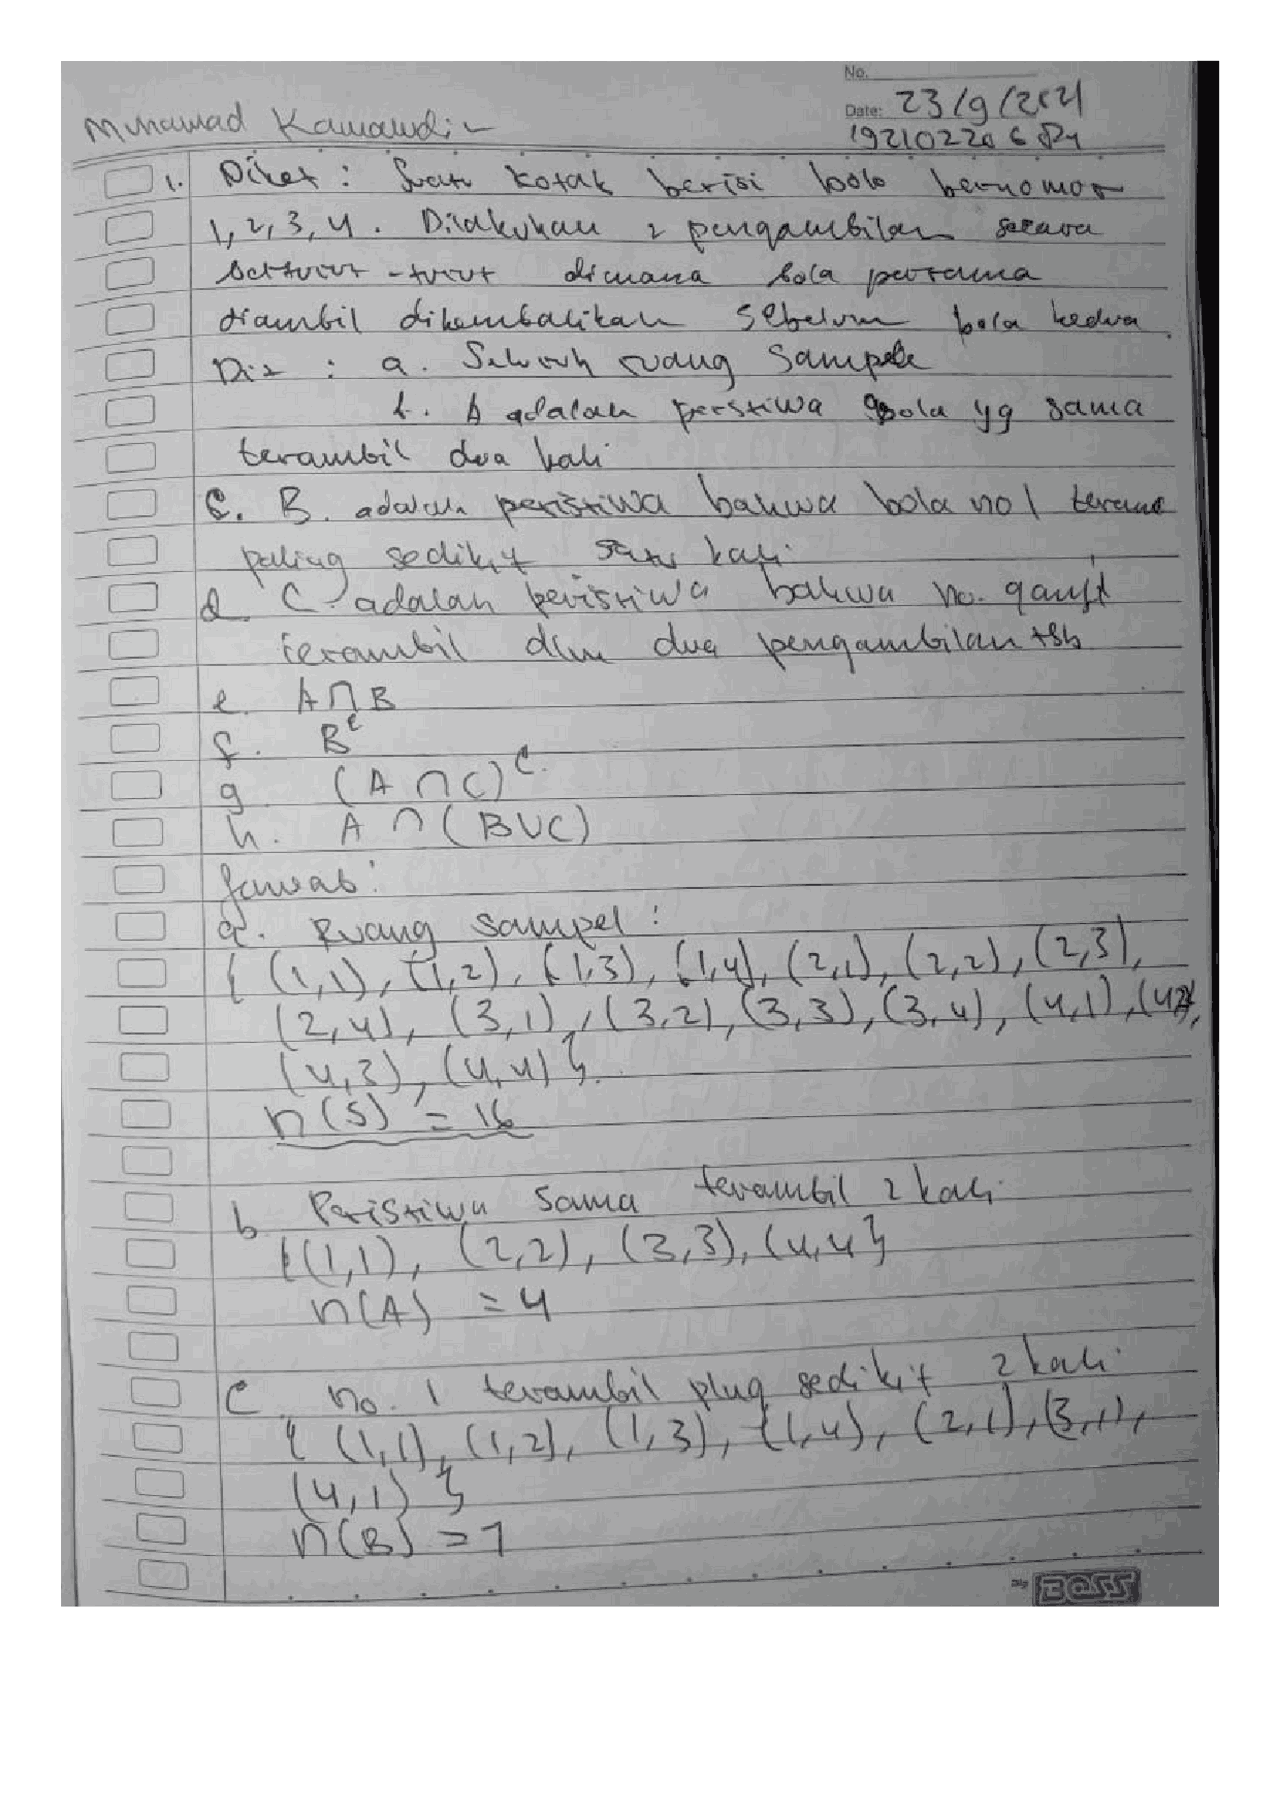 No.
Date: 23/9/2021
Muhawad Kamaudin
1921022066 Py
1. Diket : Suatu kotak berisi bola bernomor
1, 2, 3, 4. Dilakukan 2 pengambilan secara
berturut-turut dimana bola pertama
diambil dikembalikan sebelum bola kedua.
Dit : a. Seluruh ruang sampel
b. A adalah peristiwa bola yg sama
terambil dua kali
C. B. adalah peristiwa bahwa bola no 1
paling sedikit satu kali
d C adalah peristiwa bahwa no. ganjil
terambil dlm dua pengambilan tsb
e. A∩B
f. Bᶜ
g (A ∩ C)ᶜ.
h. A ∩ (B∪C)
Jawab :
a. Ruang sampel :
{ (1,1), (1,2), (1,3), (1,4), (2,1), (2,2), (2,3),
(2,4), (3,1), (3,2), (3,3), (3,4), (4,1), (4,2),
(4,3), (4,4) }.
n(S) = 16
b Peristiwa sama terambil 2 kali
{(1,1), (2,2), (3,3), (4,4}
n(A) = 4
C no. 1 terambil plng sedikit 2 kali
{ (1,1), (1,2), (1,3), (1,4), (2,1), (3,1),
(4,1) }
n(B) = 7
BOSS